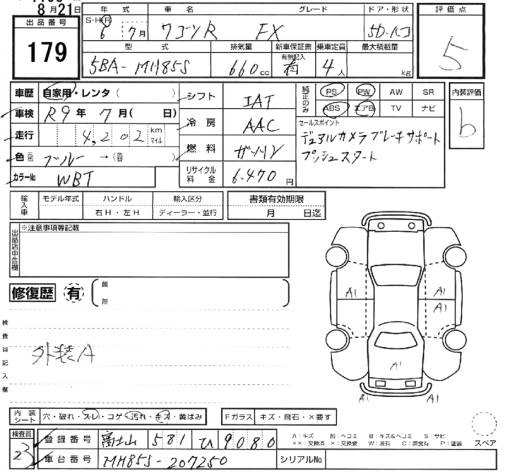 8月21日
出品番号
179
年式 車名 グレード ドア・形状
S・H・R 6年 7月 ワゴンR FX 5D.ハコ
型式 排気量 新車保証書 有無記入 乗車定員 最大積載量
5BA-MH85S 660cc 有 4人 kg
評価点
5
車歴 自家用・レンタ( )
車検 R9年 7月( 日)
走行 4,202 km マイル
色 ブルー→( )
カラーNo WBT
シフト IAT
冷房 AAC
燃料 ガソリン
リサイクル料金 6,470円
純正のみ PS PW AW SR
ABS エアB TV ナビ
セールスポイント
デュアルカメラブレーキサポート
プッシュスタート
内装評価
b
輸入車 モデル年式 ハンドル 右H・左H 輸入区分 ディーラー・並行
書類有効期限
月 日迄
※注意事項等記載
修復歴 有
検査員記入欄
外装A
A1 A1
A1
内装シート 穴・破れ・スレ・コゲ・汚れ・キズ・黄ばみ
Fガラス キズ・飛石・×要す
スペア
検査員
登録番号 富士山 581 ひ 9080
車台番号 MH85S-207250
シリアルNo